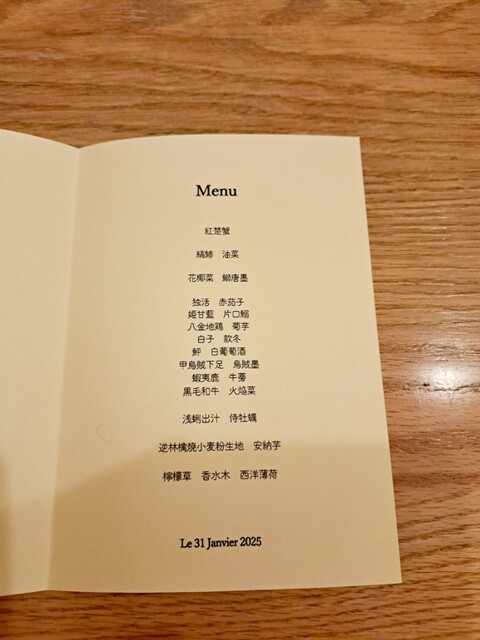 Menu
紅楚蟹
縞鯵　油菜
花椰菜　鰤唐墨
独活　赤茄子
姫甘藍　片口鰯
八金地鶏　菊芋
白子　款冬
鮃　白葡萄酒
甲烏賊下足　烏賊墨
蝦夷鹿　牛蒡
黒毛和牛　火焔菜
浅蜊出汁　侍牡蠣
逆林檎焼小麦粉生地　安納芋
檸檬草　香水木　西洋薄荷
Le 31 Janvier 2025